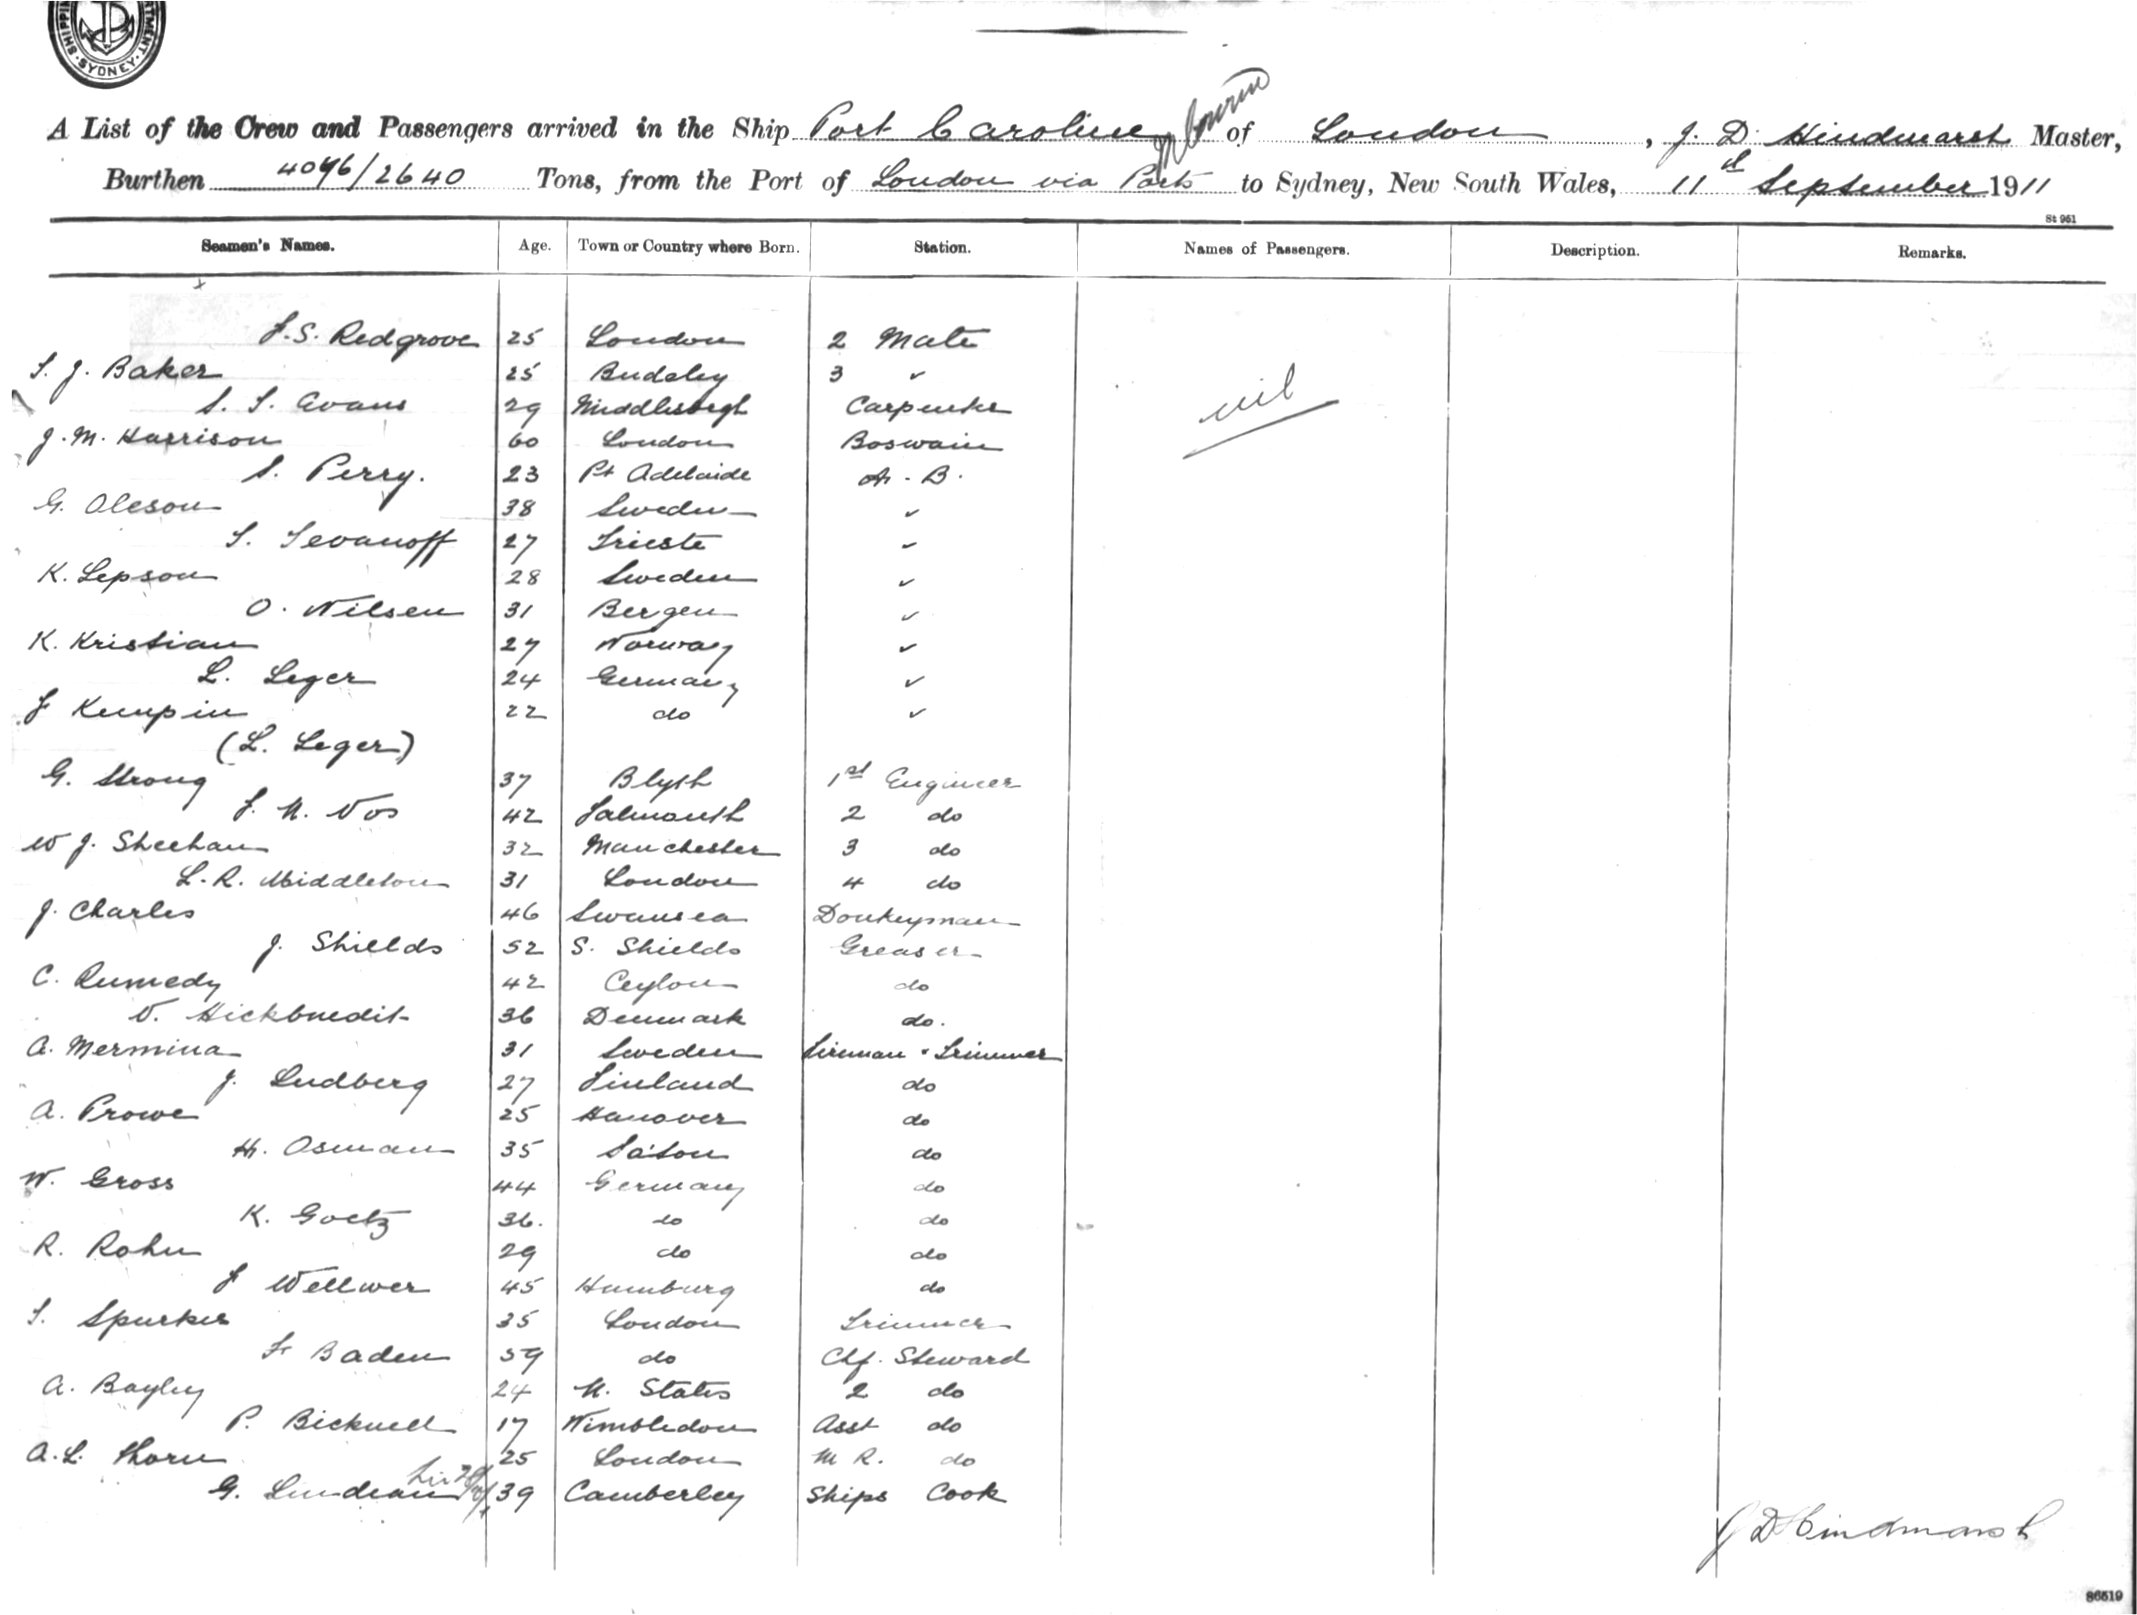 SHIPPI TMENT. SYDNEY.
A List of the Crew and Passengers arrived in the Ship Port Caroline of London, J. D. Hindmarsh Master,
Burthen 4096/2640 Tons, from the Port of London via Ports to Sydney, New South Wales, 11th September 1911
St 961
Seamen's Names. Age. Town or Country where Born. Station. Names of Passengers. Description. Remarks.
x
F. S. Redgrove 25 London 2 Mate
S. J. Baker 25 3 ✓
S. S. Evans 29 Middlesbrgh Carpenter
nil
J. M. Harrison 60 London Boswain
S. Perry. 23 Pt Adelaide A. B.
G. Oleson 38 Sweden ✓
S. Sevanoff 27 Trieste ✓
K. Lepson 28 Sweden ✓
O. Nilsen 31 Bergen ✓
K. Kristian 27 Norway ✓
L. Leger 24 Germany ✓
F Kempin 22 do ✓
(L. Leger)
G. Strong 37 Blyth 1st Engineer
F. N. Vos 42 Falmouth 2 do
W J. Sheehan 32 Manchester 3 do
L. R. Middleton 31 London 4 do
J. Charles 46 Swansea Donkeyman
J. Shields 52 S. Shields Greaser
C. Rumedy 42 Ceylon do
V. 36 Denmark do.
A. Mermina 31 Sweden Fireman & Trimmer
J. Ludberg 27 Finland do
A. Prowe 25 Hanover do
H. Osman 35 do
W. Gross 44 Germany do
K. Goetz 36. do do
R. Rohn 29 do do
F Wellwer 45 Hamburg do
S. Spurker 35 London Trimmer
F Baden 59 do Chf. Steward
A. Bayley 24 U. States 2 do
P. Bicknell 17 Wimbledon Asst do
A. L. Thorn 25 London M R. do
G. 39 Camberley Ships Cook
J D Hindmarsh
86519